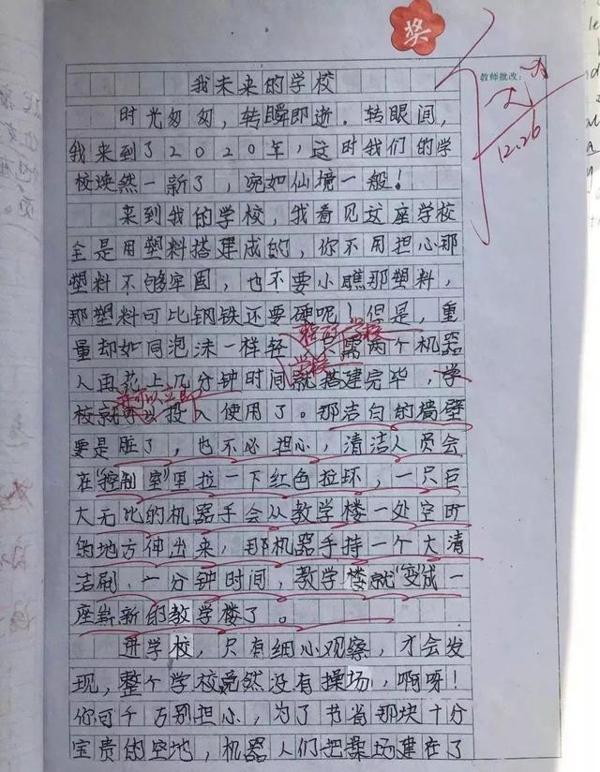 奖
教师批改：
我未来的学校
时光匆匆，转瞬即逝．转眼间，
我来到了2020年，这时我们的学
校焕然一新了，宛如仙境一般！
来到我的学校，我看见这座学校
全是用塑料搭建成的，你不用担心那
塑料不够牢固，也不要小瞧那塑料，
那塑料可比钢铁还要硬呢！但是，重
量却如同泡沫一样轻，只需两个机器
人再花上几分钟时间就搭建完毕，学
校就可以投入使用了。那洁白的墙壁
要是脏了，也不必担心，清洁人员会
在“控制室”里拉一下红色拉环，一只巨
大无比的机器手会从教学楼一处空旷
的地方伸出来，那机器手持一个大清
洁刷，一分钟时间，教学楼就“变”成一
座崭新的教学楼了。
进学校，只有细心观察，才会发
现，整个学校竟然没有操场，啊呀！
你可千万别担心，为了节省那块十分
宝贵的空地，机器人们把操场建在了
12.26